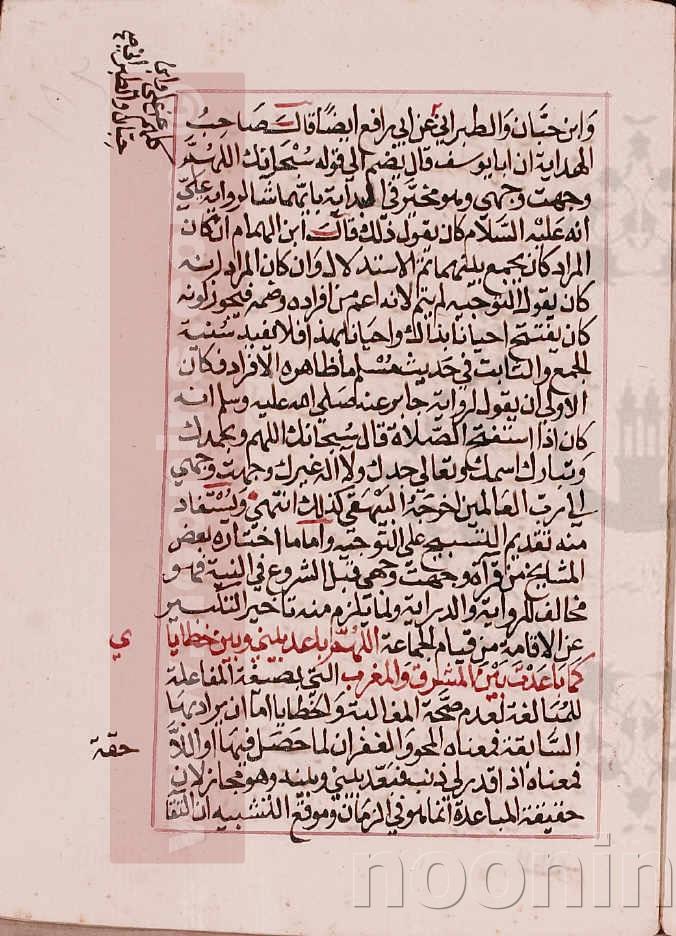 وابن حبان والطبراني عن ابي رافع ايضا قال صاحب
الهداية ان ابا يوسف قال يضم الى قوله سبحانك اللهم
وجهت وجهي وهو مخير في البداية بايهما شا لرواية علي
انه عليه السلام كان يقول ذلك قال ابن الهمام ان كان
المراد كان يجمع بينهما تم الاستدلال وان كان المراد انه
كان يقول التوجيه لم يتم لانه اعم من افراده وضمه فيجوز كونه
كان يفتتح احيانا بذاك واحيانا بهذا فلا يفيد سنية
الجمع والثابت في حديث مسلم ما ظاهره الافراد فكان
الاولى ان يقول لرواية جابر عنه صلى الله عليه وسلم انه
كان اذا استفتح الصلاة قال سبحانك اللهم وبحمدك
وتبارك اسمك وتعالى جدك ولا اله غيرك وجهت وجهي
الى رب العالمين اخرجه البيهقي كذلك انتهى ويستفاد
منه تقديم التسبيح على التوجيه واما ما اختاره بعض
المشايخ من قرآة وجهت وجهي قبل الشروع في النية فهو
مخالف للرواية والدراية ولما يلزم منه تاخير التكبير
عن الاقامة من قيام الجماعة اللهم باعد بيني وبين خطايا
ي
كما باعدت بين المشرق والمغرب اتى بصيغة المفاعلة
للمبالغة لعدم صحة المغالبة والخطايا اما ان يراد بها
السابقة فمعناه المحو والغفران لما حصل فيها او اللا
حقة
فمعناه اذا قدر لي ذنب فبعد بيني وبينه وهو مجاز لان
حقيقة المباعدة انما هو في الزمان وموقع التشبيه ان التقا